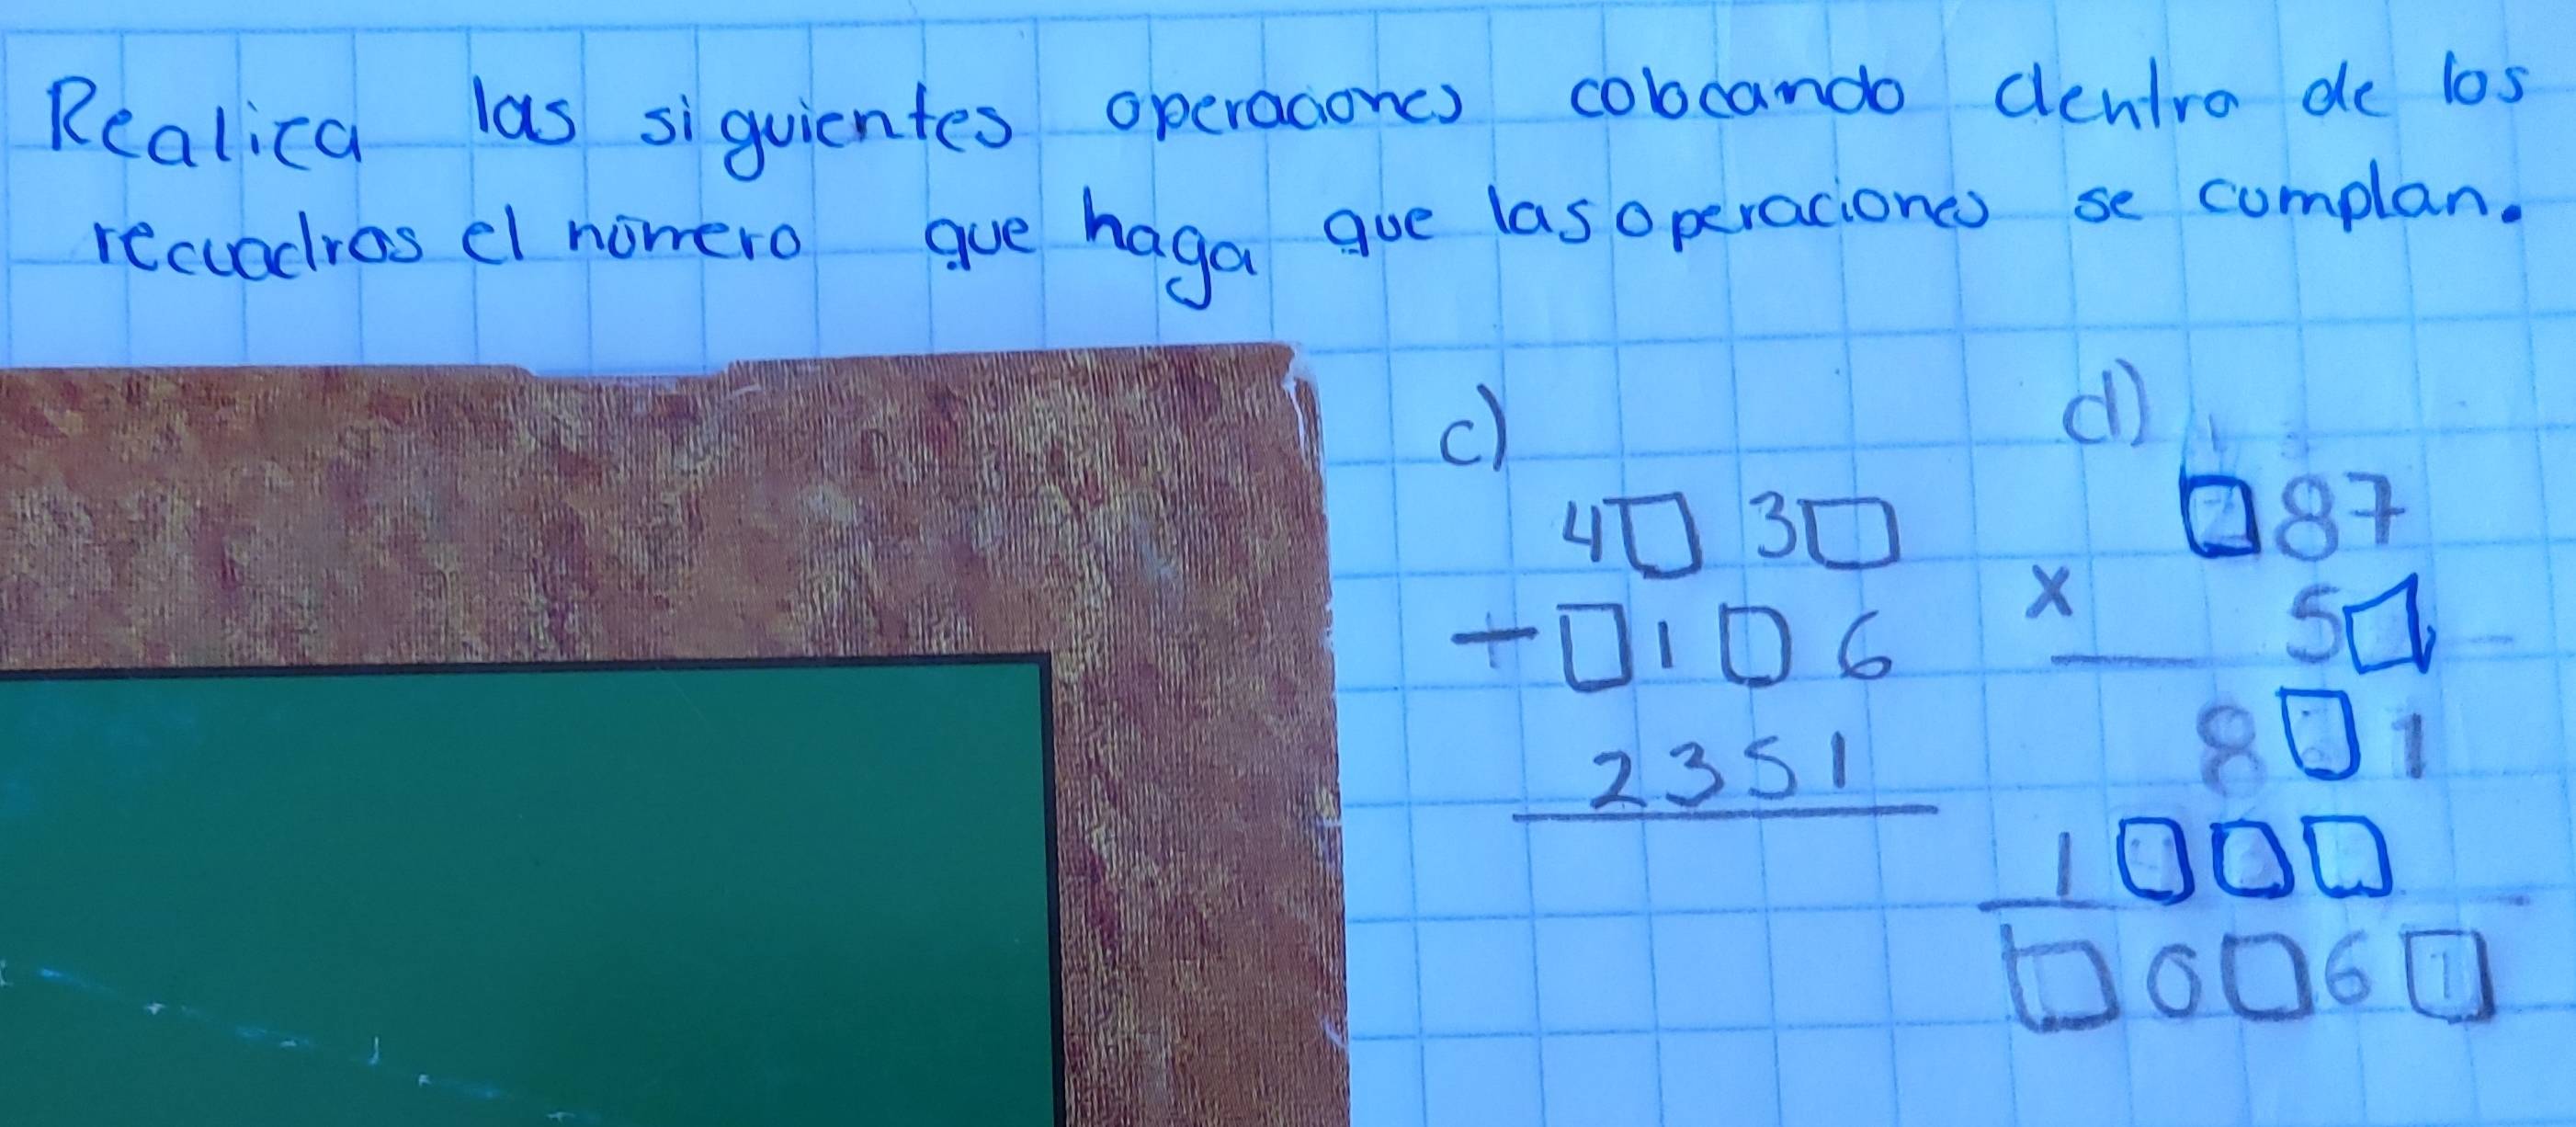 Realiza las siguientes operaciones colocando dentro de los
recuadros el número que haga que las operaciones se cumplan.
c) d)
4□ 3□ □87
-□1□6 x 5□
2351 8□1
1□□□
□0□6□